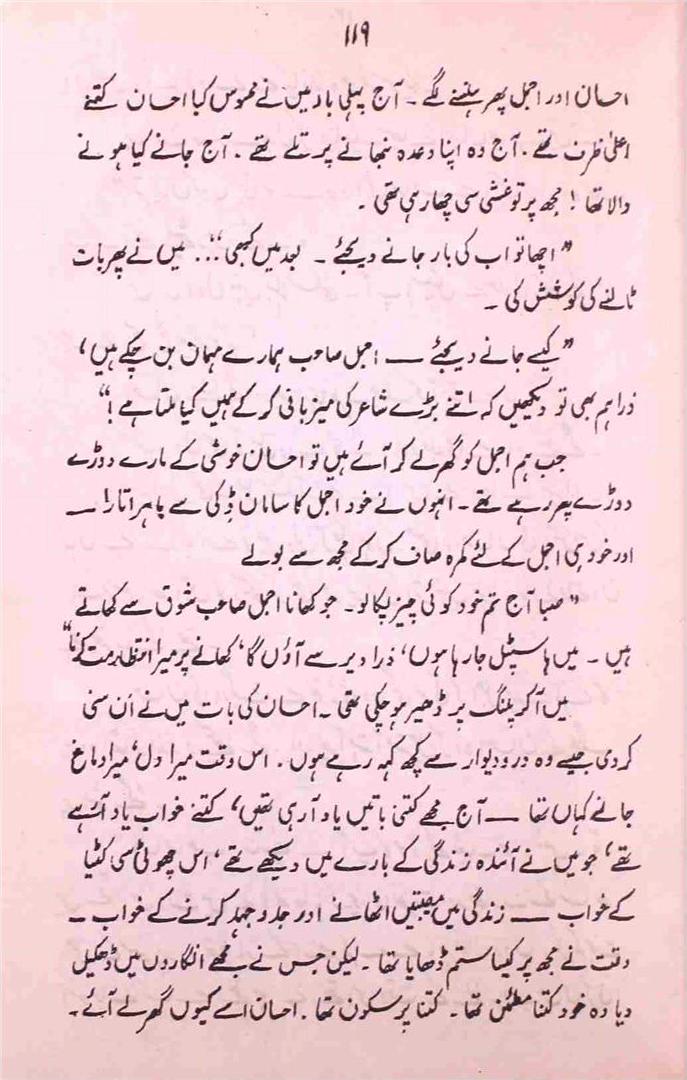 ۱۱۹
احسان اور اجمل پھر ہنسنے لگے ۔ آج پہلی بار میں نے محسوس کیا احسان کتنے
اعلیٰ ظرف تھے ۔ آج وہ اپنا وعدہ نبھانے پر تلے تھے ۔ آج جانے کیا ہونے
والا تھا ! مجھ پر تو غشی سی چھا رہی تھی ۔
” اچھا تو اب کی بار جانے دیجئے ۔ بعد میں کبھی “... میں نے پھر بات
ٹالنے کی کوشش کی ۔
” کیسے جانے دیجئے ــــ اجمل صاحب ہمارے مہمان بن چکے ہیں ،
ذرا ہم بھی تو دیکھیں کہ اتنے بڑے شاعر کی میزبانی کر کے ہمیں کیا ملتا ہے ! “
جب ہم اجمل کو گھر لے کر آئے ہیں تو احسان خوشی کے مارے دوڑے
دوڑے پھر رہے تھے ۔ انہوں نے خود اجمل کا سامان ڈِکی سے باہر اتارا ــــ
اور خود ہی اجمل کے لئے کمرہ صاف کر کے مجھ سے بولے
” صبا آج تم خود کوئی چیز پکا لو ۔ جو کھانا اجمل صاحب شوق سے کھاتے
ہیں ۔ میں ہاسپٹل جا رہا ہوں ، ذرا دیر سے آؤں گا ، کھانے پر میرا انتظار مت کرنا “
میں آ کر پلنگ پر ڈھیر ہو چکی تھی ۔ احسان کی بات میں نے اَن سنی
کر دی جیسے وہ در و دیوار سے کچھ کہہ رہے ہوں ۔ اس وقت میرا دل ، میرا دماغ
جانے کہاں تھا ــــ آج مجھے کتنی باتیں یاد آ رہی تھیں ، کتنے خواب یاد آئے ہے
تھے ، جو میں نے آئندہ زندگی کے بارے میں دیکھے تھے ، اس چھوٹی سی کٹیا
کے خواب ــــ زندگی میں مصیبتیں اٹھانے اور جد و جہد کرنے کے خواب ۔
وقت نے مجھ پر کیسا ستم ڈھایا تھا ۔ لیکن جس نے مجھے انگاروں میں ڈھکیل
دیا وہ خود کتنا مطمئن تھا ۔ کتنا پر سکون تھا ۔ احسان اسے کیوں گھر لے آئے ۔